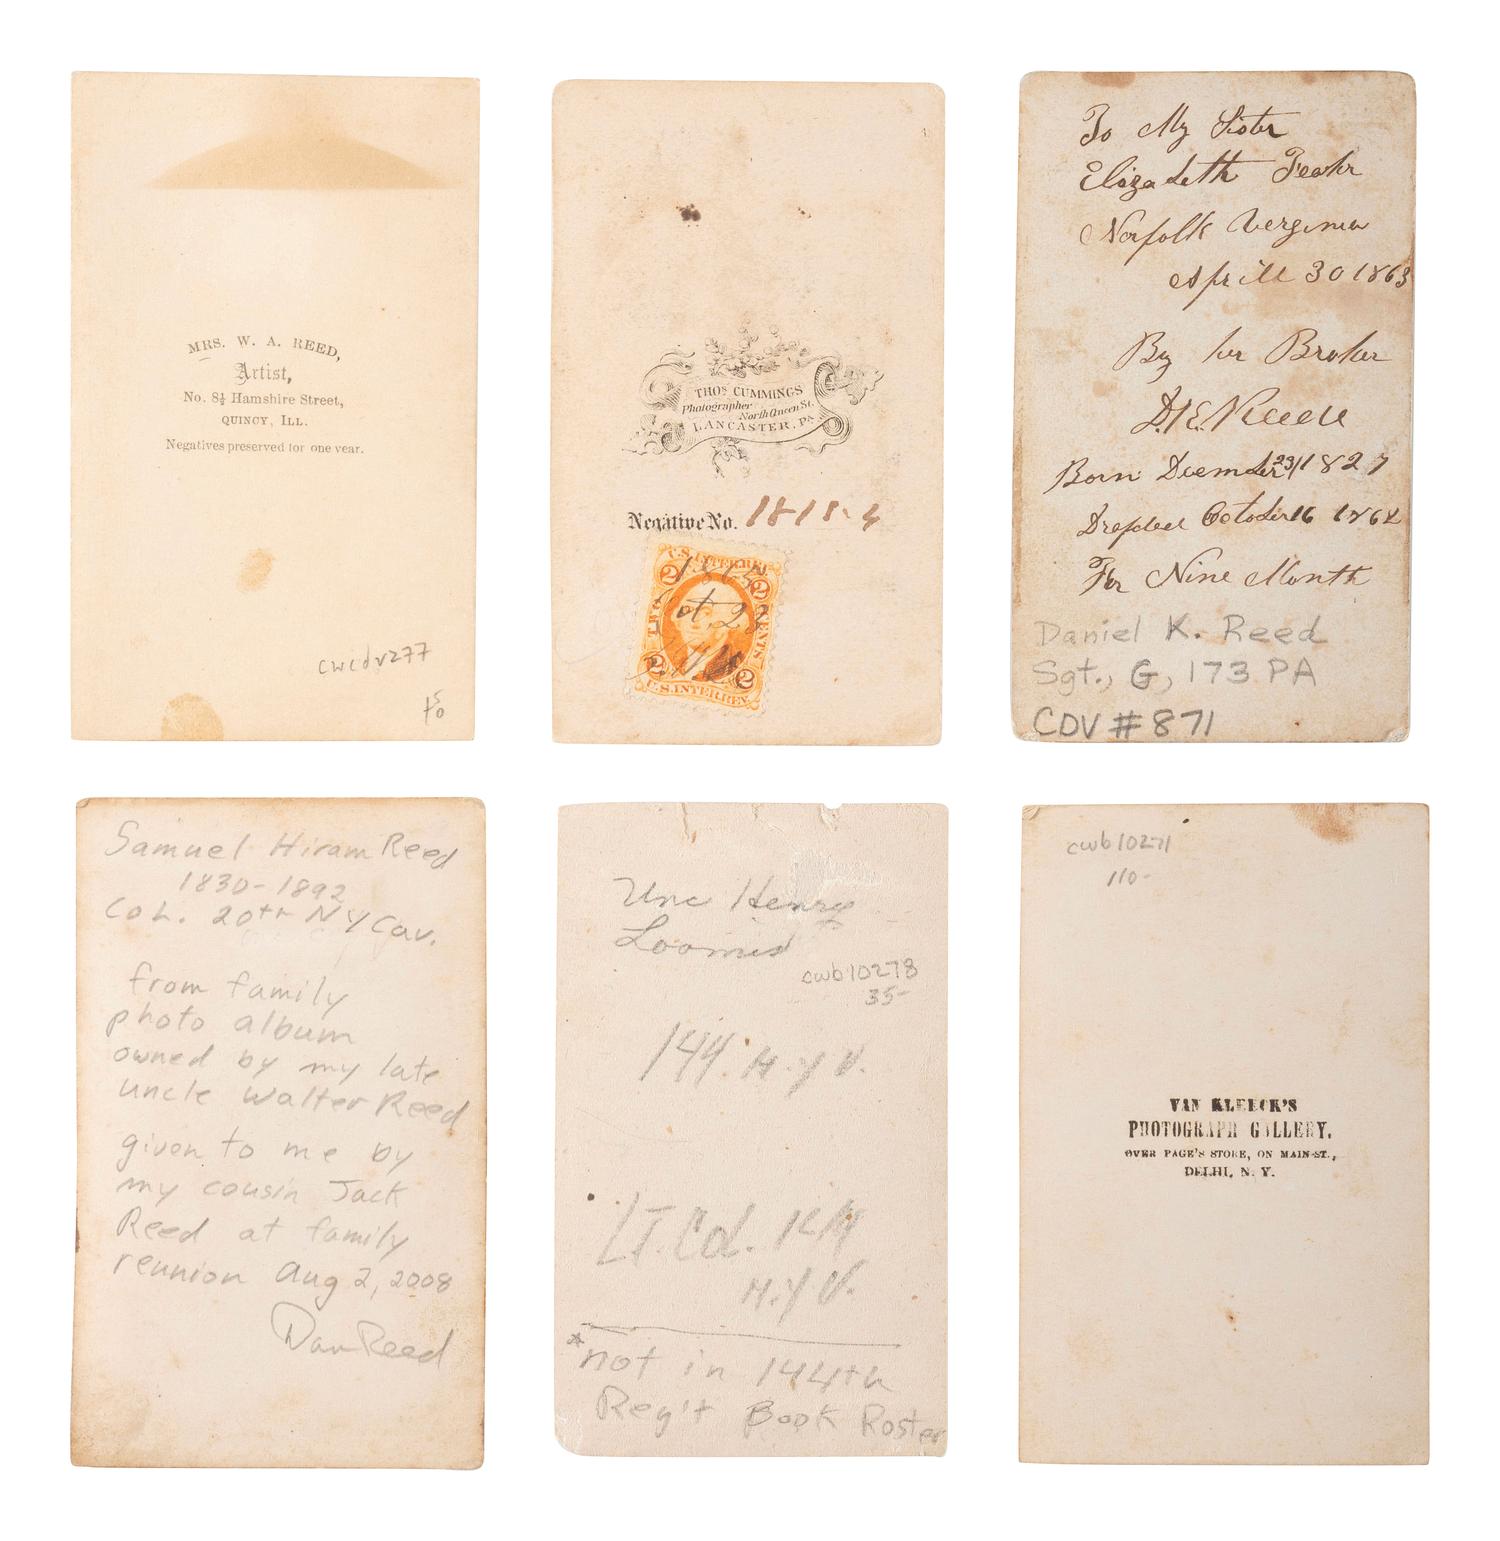 MRS. W. A. REED,
Artist,
No. 8½ Hamshire Street,
QUINCY, ILL.
Negatives preserved for one year.
cwcdv277
THOS CUMMINGS
Photographer North Queen St.
LANCASTER, PA
Negative No. 1818-4
U.S. INTER. REV.
2 2
1865
Oct. 23
TWO CENTS
2 2
U.S. INTER. REV.
To My Sister
Elizabeth
Norfolk Verginia
Aprill 30 1863
By her Brother
D. K. Reede
Born December 23/1827
October 16 1862
For Nine Month
Daniel K. Reed
Sgt., G, 173 PA
CDV # 871
Samuel Hiram Reed
1830-1892
Col. 20th NY Cav.
from family
photo album
owned by my late
uncle Walter Reed
given to me by
my cousin Jack
Reed at family
reunion Aug 2, 2008
Dan Reed
Unc Henry
Loomis
cwb10278
35-
144. N. Y. V.
LT. Col. 144
N. Y. V.
* not in 144th
Reg't Book Roster
cwb10271
110-
VAN KLEECK'S
PHOTOGRAPH GALLERY,
OVER PAGE'S STORE, ON MAIN-ST.,
DELHI, N. Y.